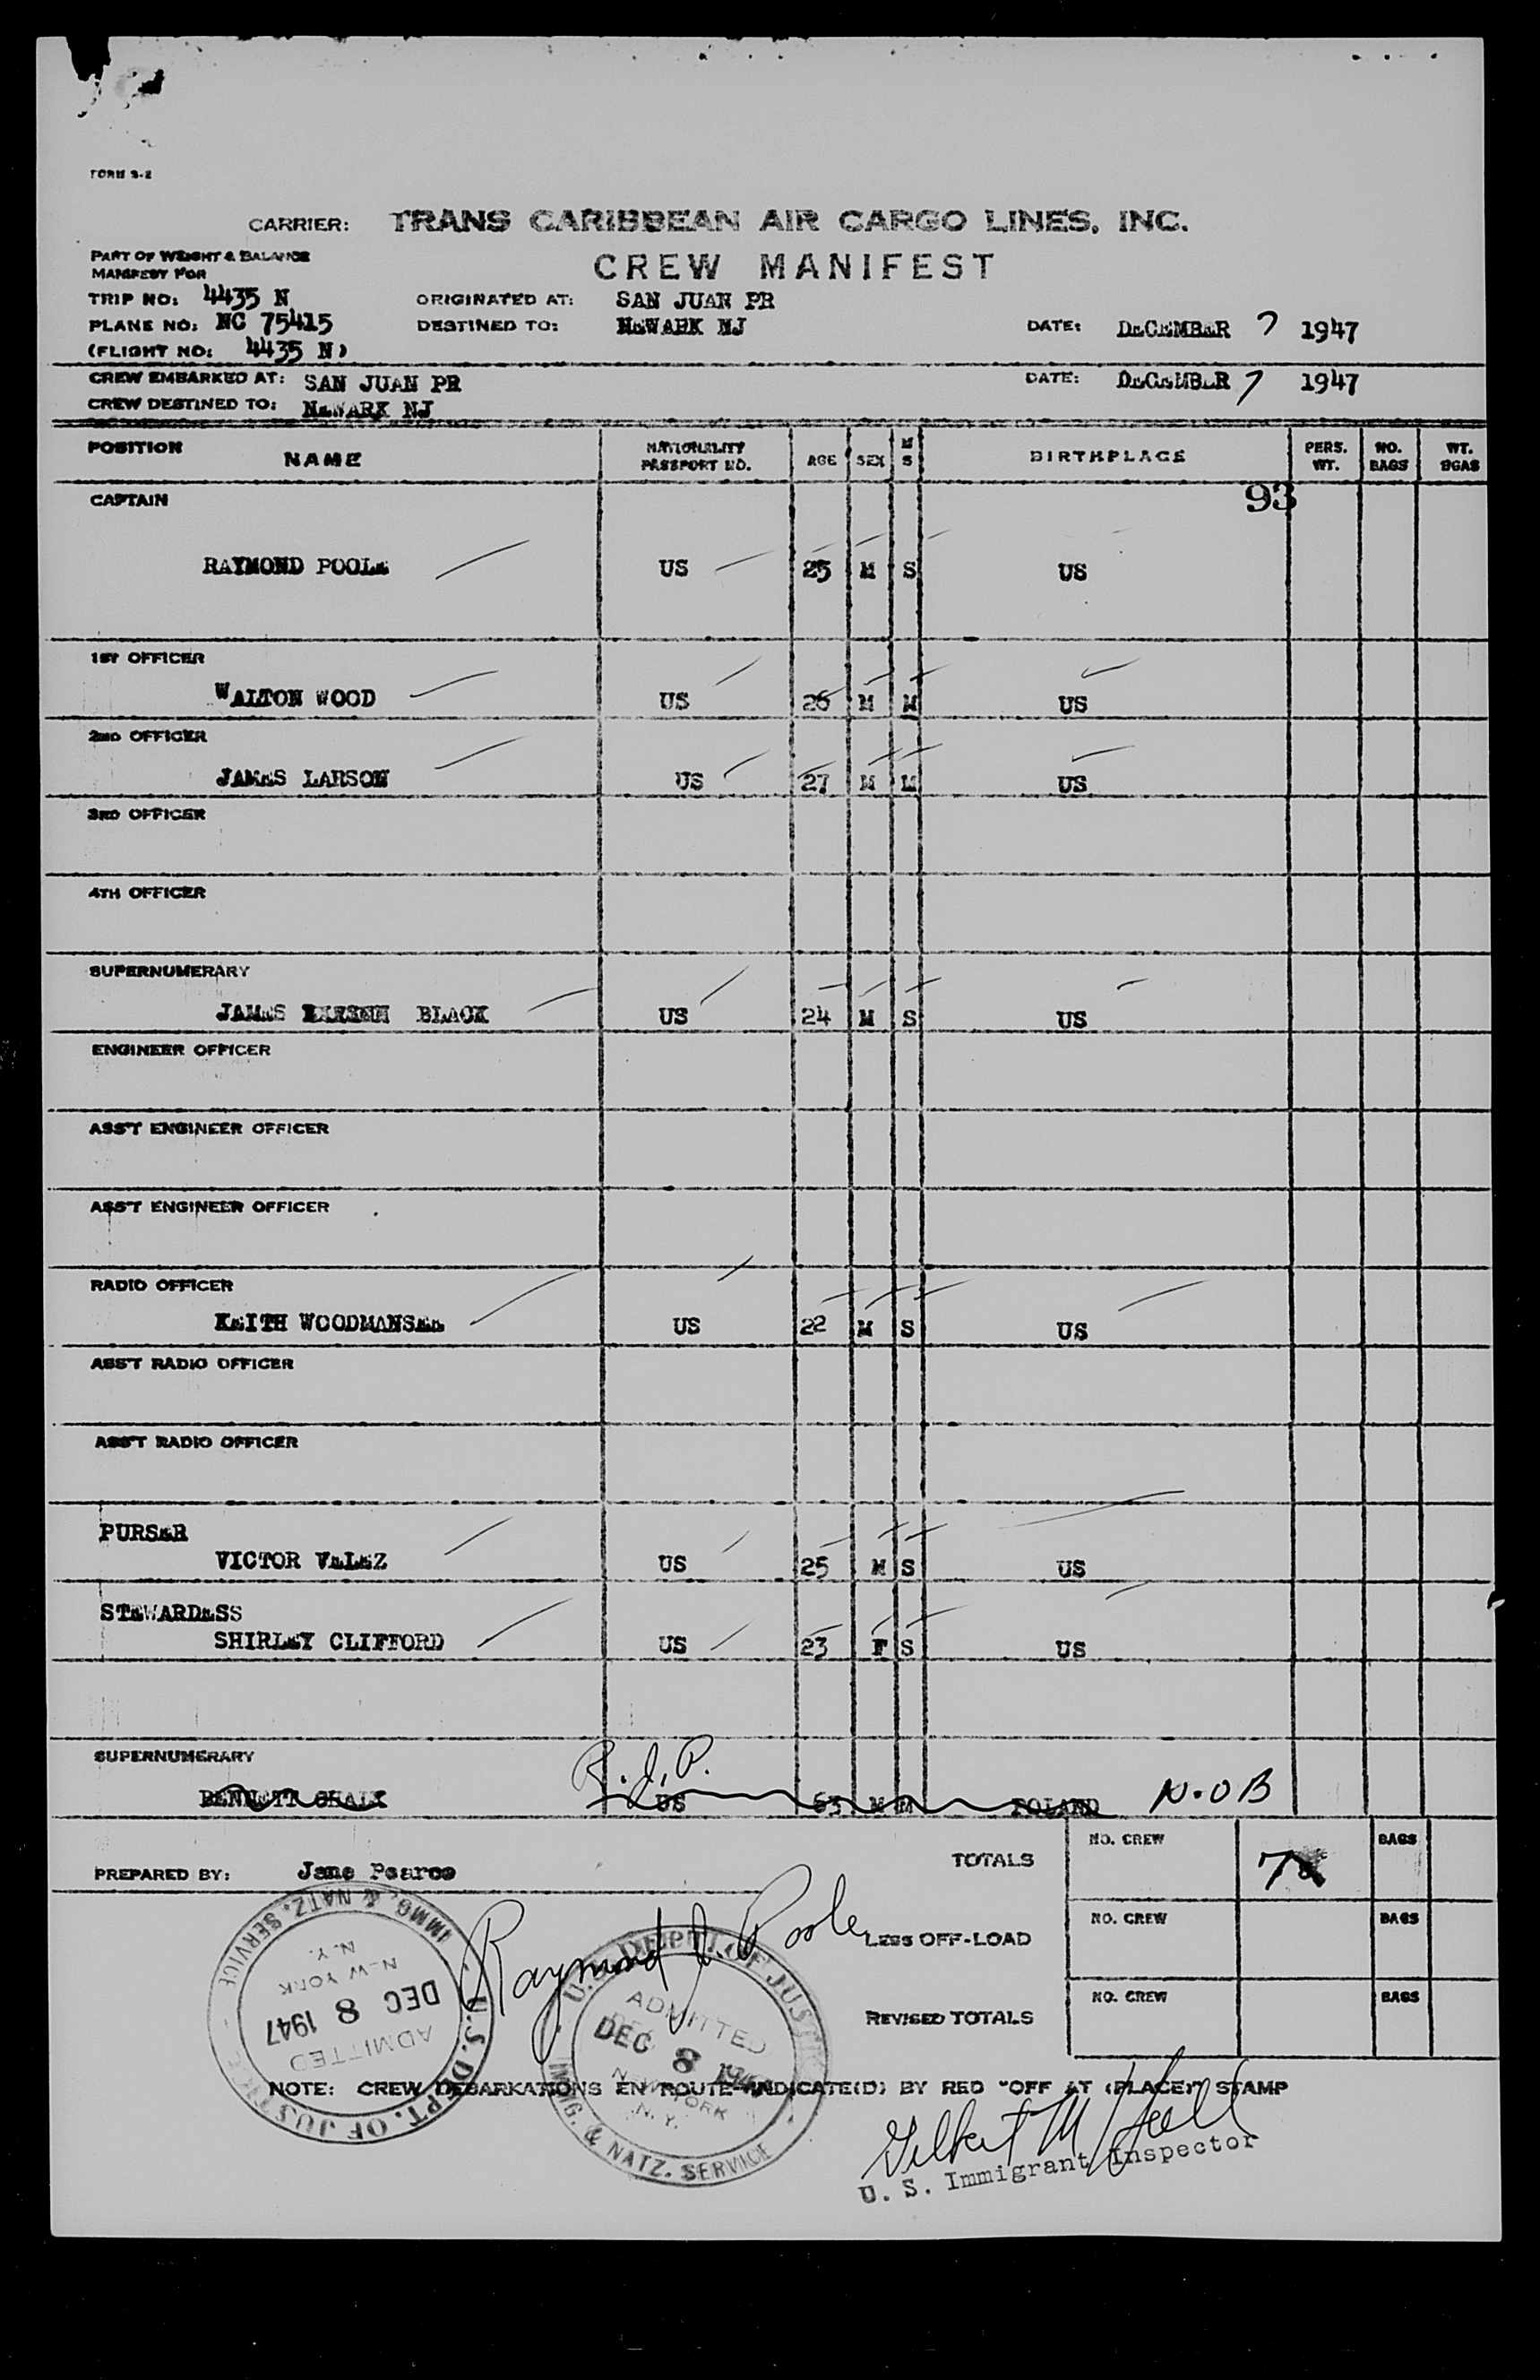 FORM S-2
CARRIER: TRANS CARIBBEAN AIR CARGO LINES, INC.
PART OF WEIGHT & BALANCE
MANIFEST FOR
CREW MANIFEST
TRIP NO: 4435 N ORIGINATED AT: SAN JUAN PR
PLANE NO: NC 75415 DESTINED TO: NEWARK NJ DATE: DECEMBER 7 1947
(FLIGHT NO: 4435 N)
CREW EMBARKED AT: SAN JUAN PR DATE: DECEMBER 7 1947
CREW DESTINED TO: NEWARK NJ
POSITION NAME NATIONALITY PASSPORT NO. AGE SEX M S BIRTHPLACE PERS. WT. NO. BAGS WT. BGAS
93
CAPTAIN
RAYMOND POOLE US 25 M S US
1ST OFFICER
WALTON WOOD US 26 M M US
2ND OFFICER
JAMES LARSON US 27 M M US
3RD OFFICER
4TH OFFICER
SUPERNUMERARY
JAMES BLACK US 24 M S US
ENGINEER OFFICER
ASS'T ENGINEER OFFICER
ASS'T ENGINEER OFFICER
RADIO OFFICER
KEITH WOODMANSEE US 22 M S US
ASS'T RADIO OFFICER
ASS'T RADIO OFFICER
PURSER
VICTOR VELEZ US 25 M S US
STEWARDESS
SHIRLEY CLIFFORD US 23 F S US
SUPERNUMERARY R.J.P.
BENNETT CHALK US 63 M M POLAND N.O.B
PREPARED BY: Jane Pearce TOTALS NO. CREW 7 BAGS
Raymond J. Poole
LESS OFF-LOAD NO. CREW BAGS
REVISED TOTALS NO. CREW BAGS
U.S. DEPT. OF JUSTICE
ADMITTED
DEC 8 1947
NEW YORK
N.Y.
IMMG. & NATZ. SERVICE
U.S. DEPT. OF JUSTICE
ADMITTED
DEC 8 1947
NEW YORK
N.Y.
IMMG. & NATZ. SERVICE
NOTE: CREW DEBARKATIONS EN ROUTE INDICATE(D) BY RED "OFF AT (PLACE)" STAMP
Gilbert M
U. S. Immigrant Inspector